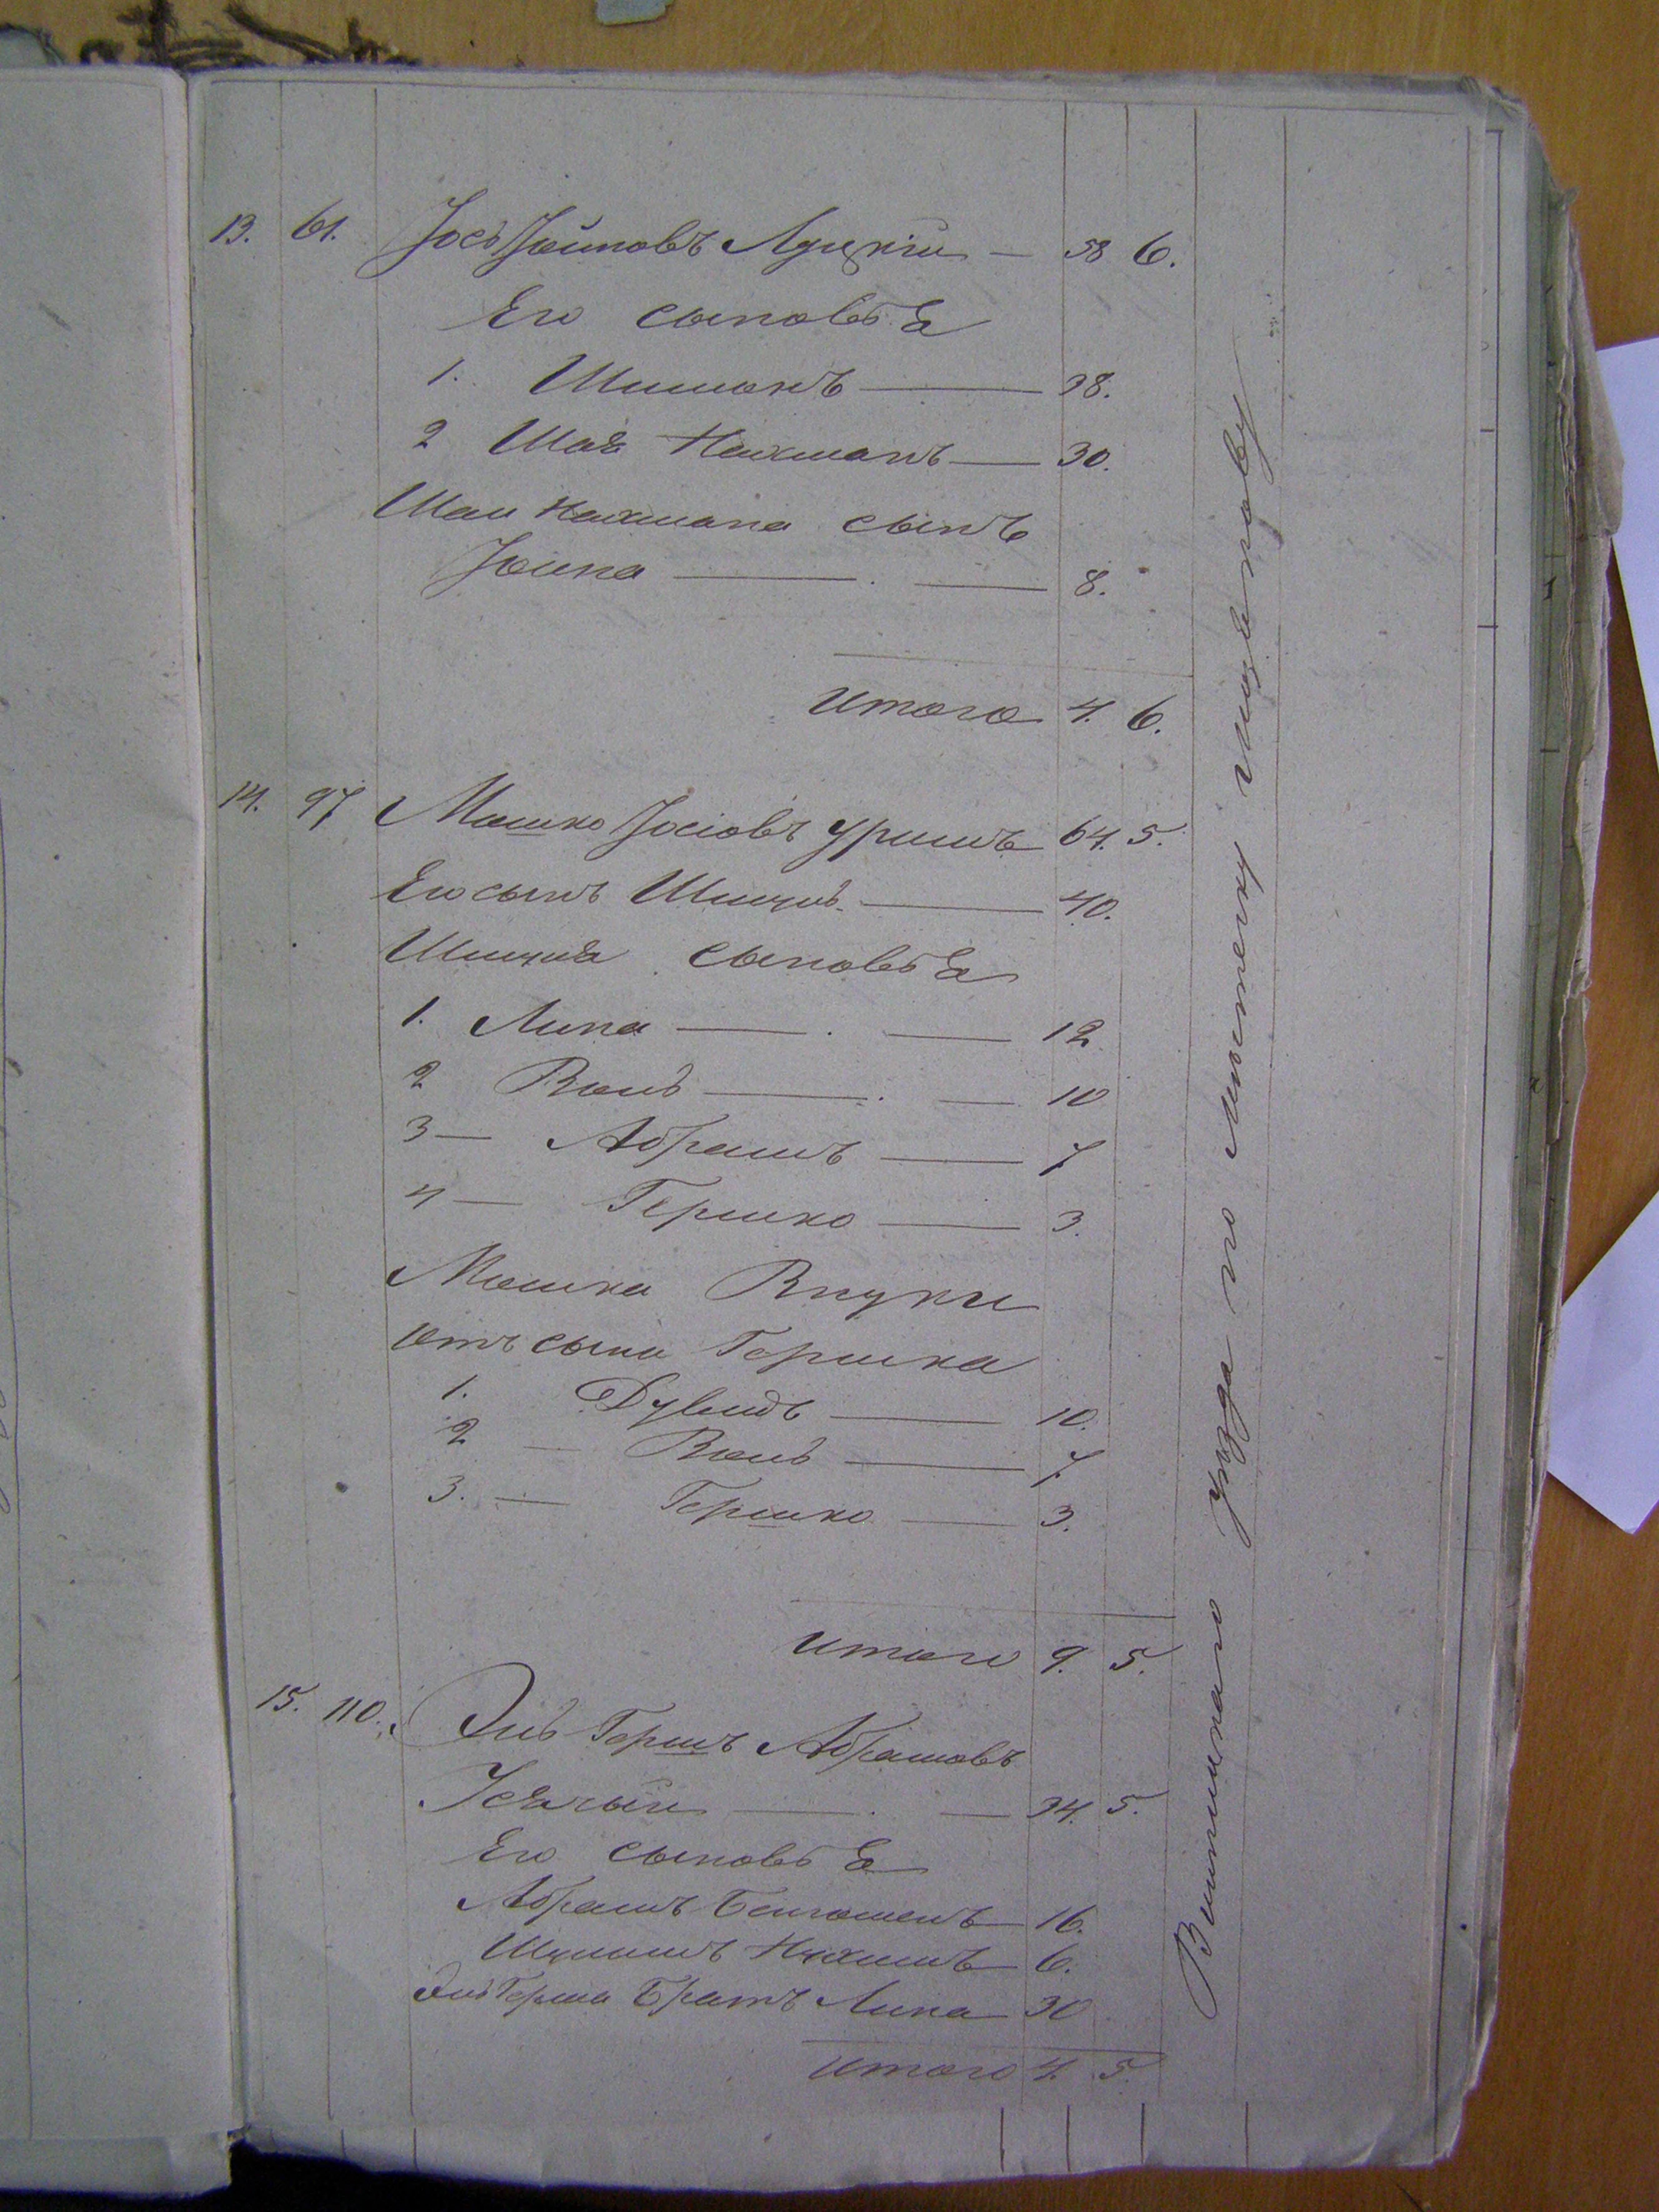 13. 61. Јось Јойновъ Луцкій — 58 6.
Его сыновья
1. Шиманъ — 38.
2 Шая Нахманъ — 30.
Шаи Нахмана сынъ
Јойна — 8.
Итого 4. 6.
14. 97 Мошко Јосіовъ Уримъ 64. 5.
Его сынъ Шимчи — 40.
сыновья
1. Липа — 12
2 Волъ — 10
3 — Абрамъ — 7
4 — Гершко — 3.
Мошка Внуки
отъ сына Гершка
1. Дувидъ — 10.
2 — Волъ — 7
3. — Гершко — 3.
Итого 9. 5.
15. 110. Эль Гершъ Абрамовъ
34. 5.
Его сыновья
Абрамъ 16.
Шулимъ Нухимъ 6.
Эль Герша Братъ Липа — 30
Итого 4. 5.
уезда по местечку